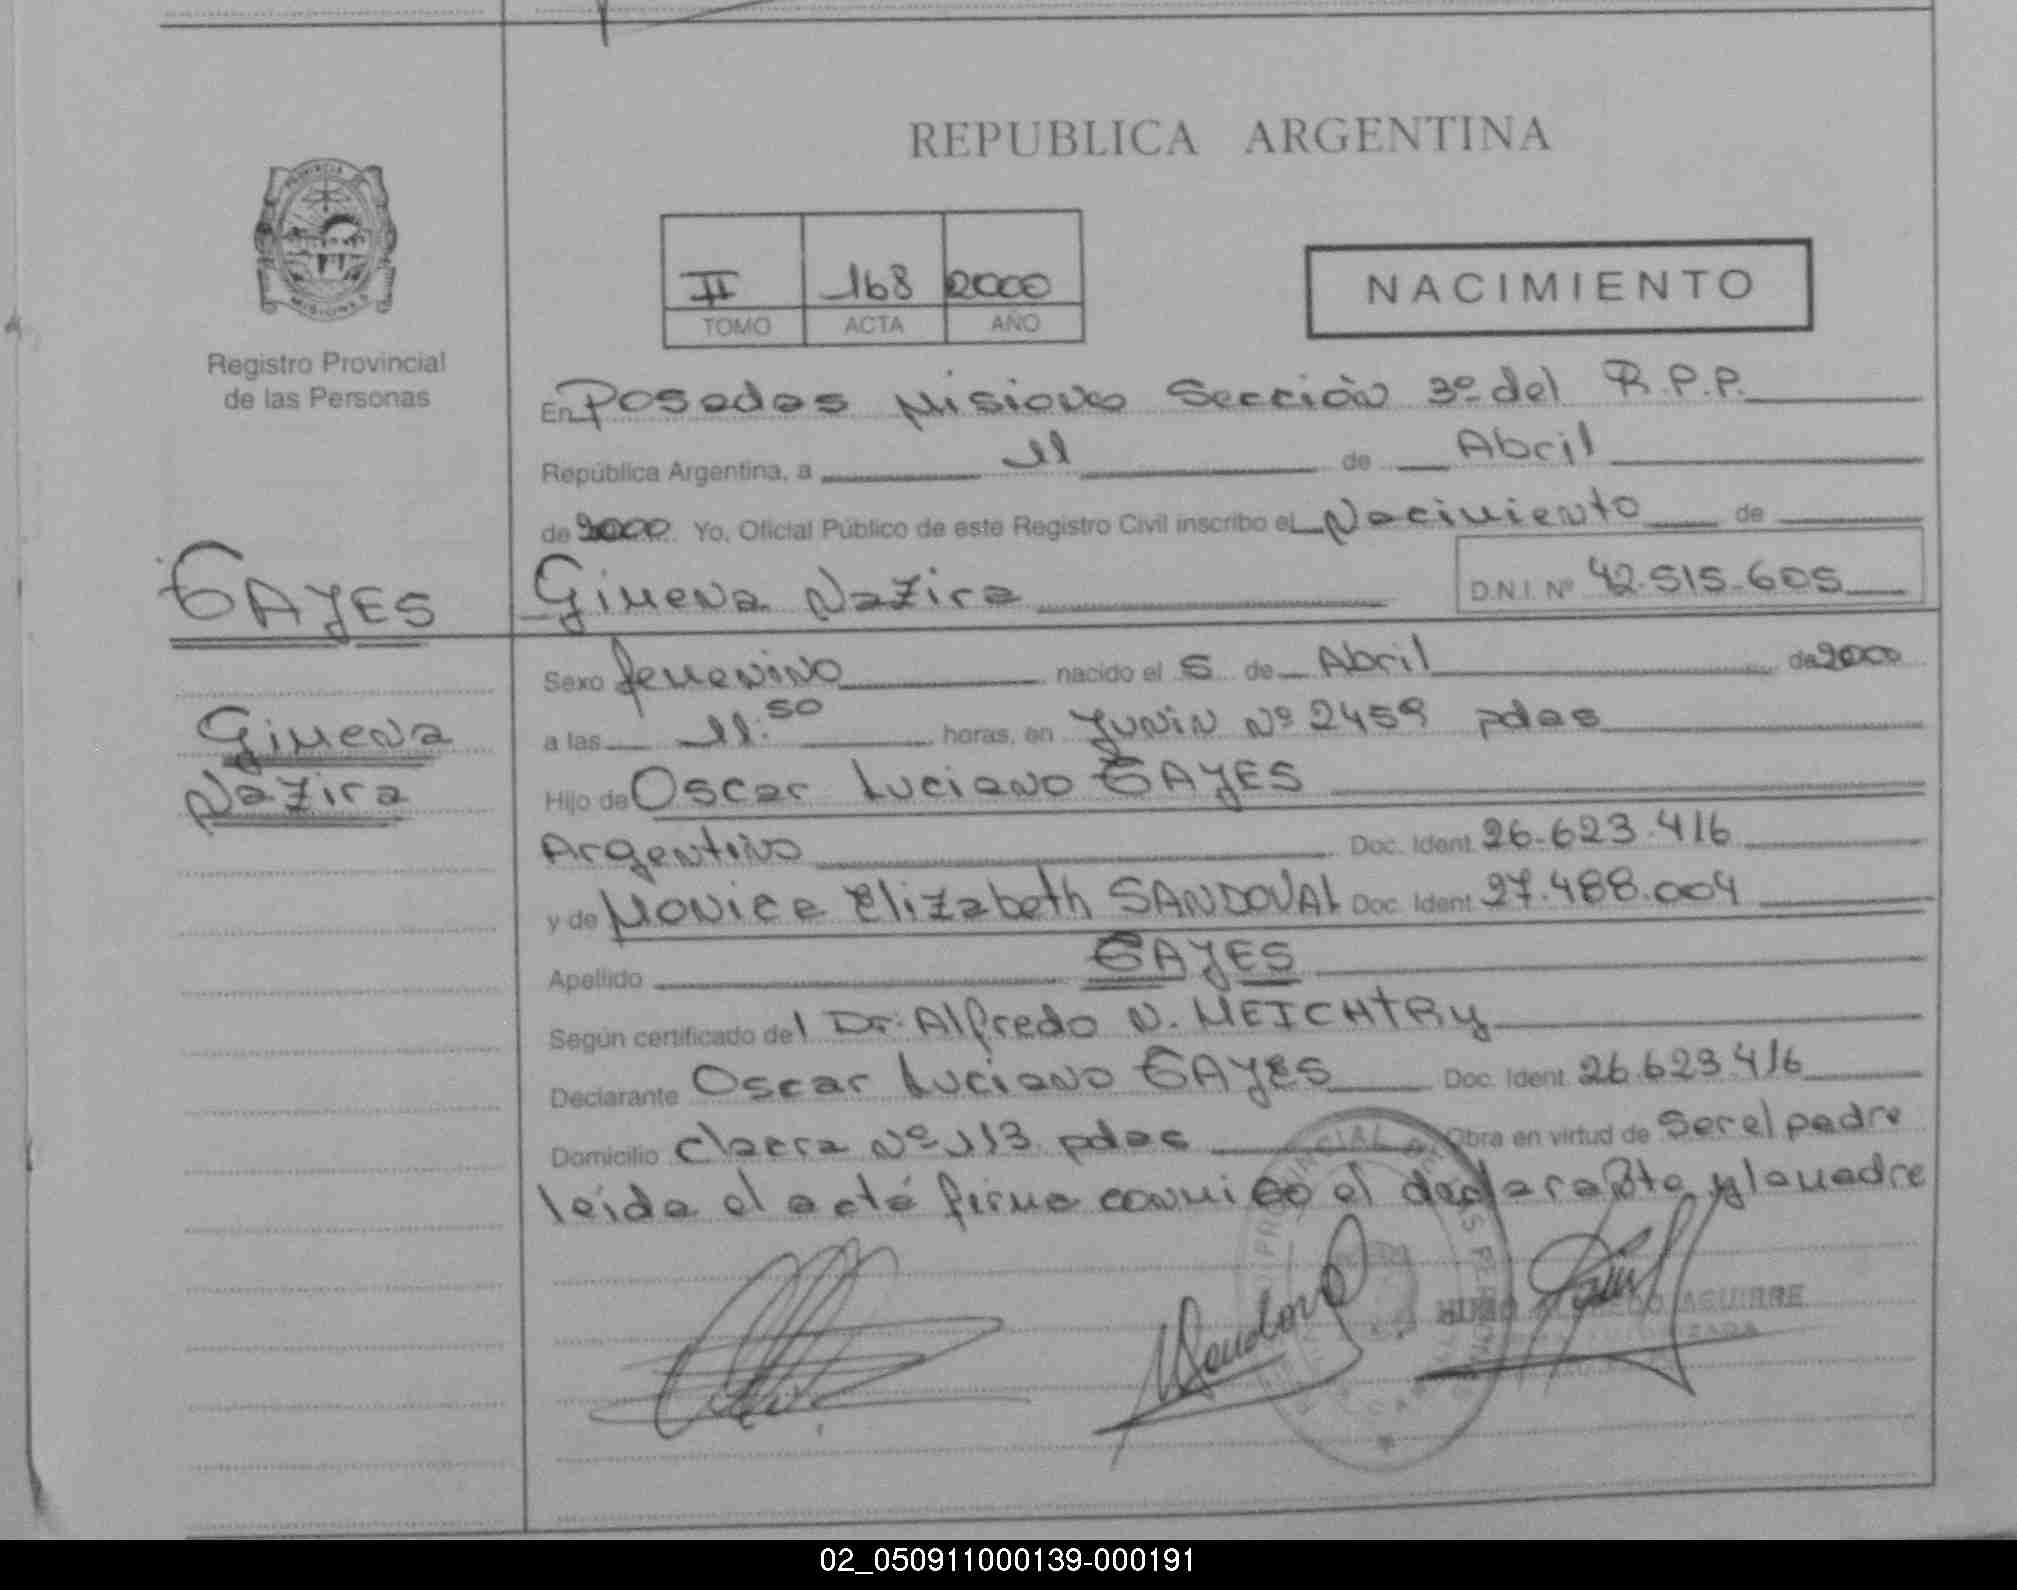 REPUBLICA ARGENTINA
II 168 2000
TOMO ACTA AÑO
NACIMIENTO
Registro Provincial
de las Personas
En Posadas Misiones Sección 3º del R.P.P.
República Argentina, a 11 de Abril
de 2000 Yo, Oficial Público de este Registro Civil inscribo el Nacimiento de
GAYES
Gimena Nazira D.N.I. Nº 42.515.605
Sexo femenino nacido el 5 de Abril de 2000
Gimena
Nazira
a las 11:50 horas, en Junin Nº 2459 pdas
Hijo de Oscar Luciano GAYES
Argentino Doc. Ident. 26.623.416
y de Monica Elizabeth SANDOVAL Doc. Ident. 27.488.004
Apellido GAYES
Según certificado del Dr. Alfredo N. MEICHTRY
Declarante Oscar Luciano GAYES Doc. Ident. 26.623.416
Domicilio Nº 113 pdas Obra en virtud de ser el padre
leida el acta firma conmigo el declarante y la madre
AGUIRRE
02_050911000139-000191